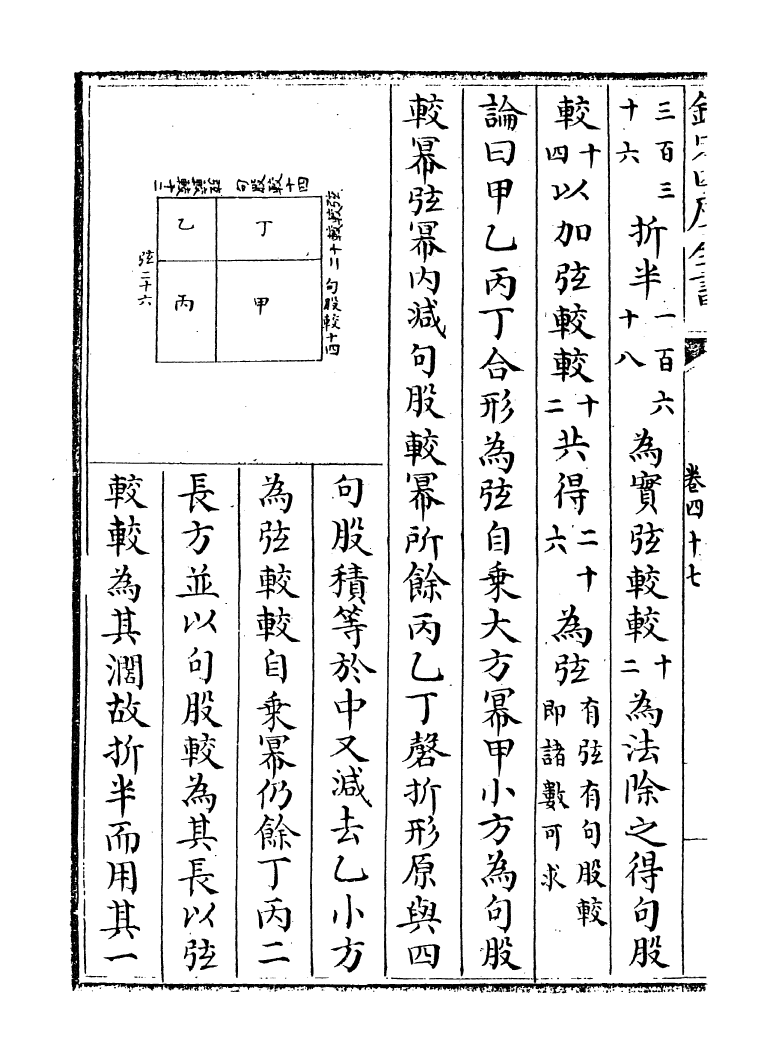 欽定四庫全書
卷四十七
三百三十六折半一百六十八為實弦較較十二為法除之得句股
較十四以加弦較較十二共得二十六為弦有弦有句股較即諸數可求
論曰甲乙丙丁合形為弦自乗大方冪甲小方為句股
較冪弦冪内減句股較冪所餘丙乙丁磬折形原與四
句股積等於中又減去乙小方
為弦較較自乗冪仍餘丁丙二
長方並以句股較為其長以弦
較較為其濶故折半而用其一
弦較較十二
句股較十四
句股較十四
弦較較十二
弦二十六
丁
乙
甲
丙